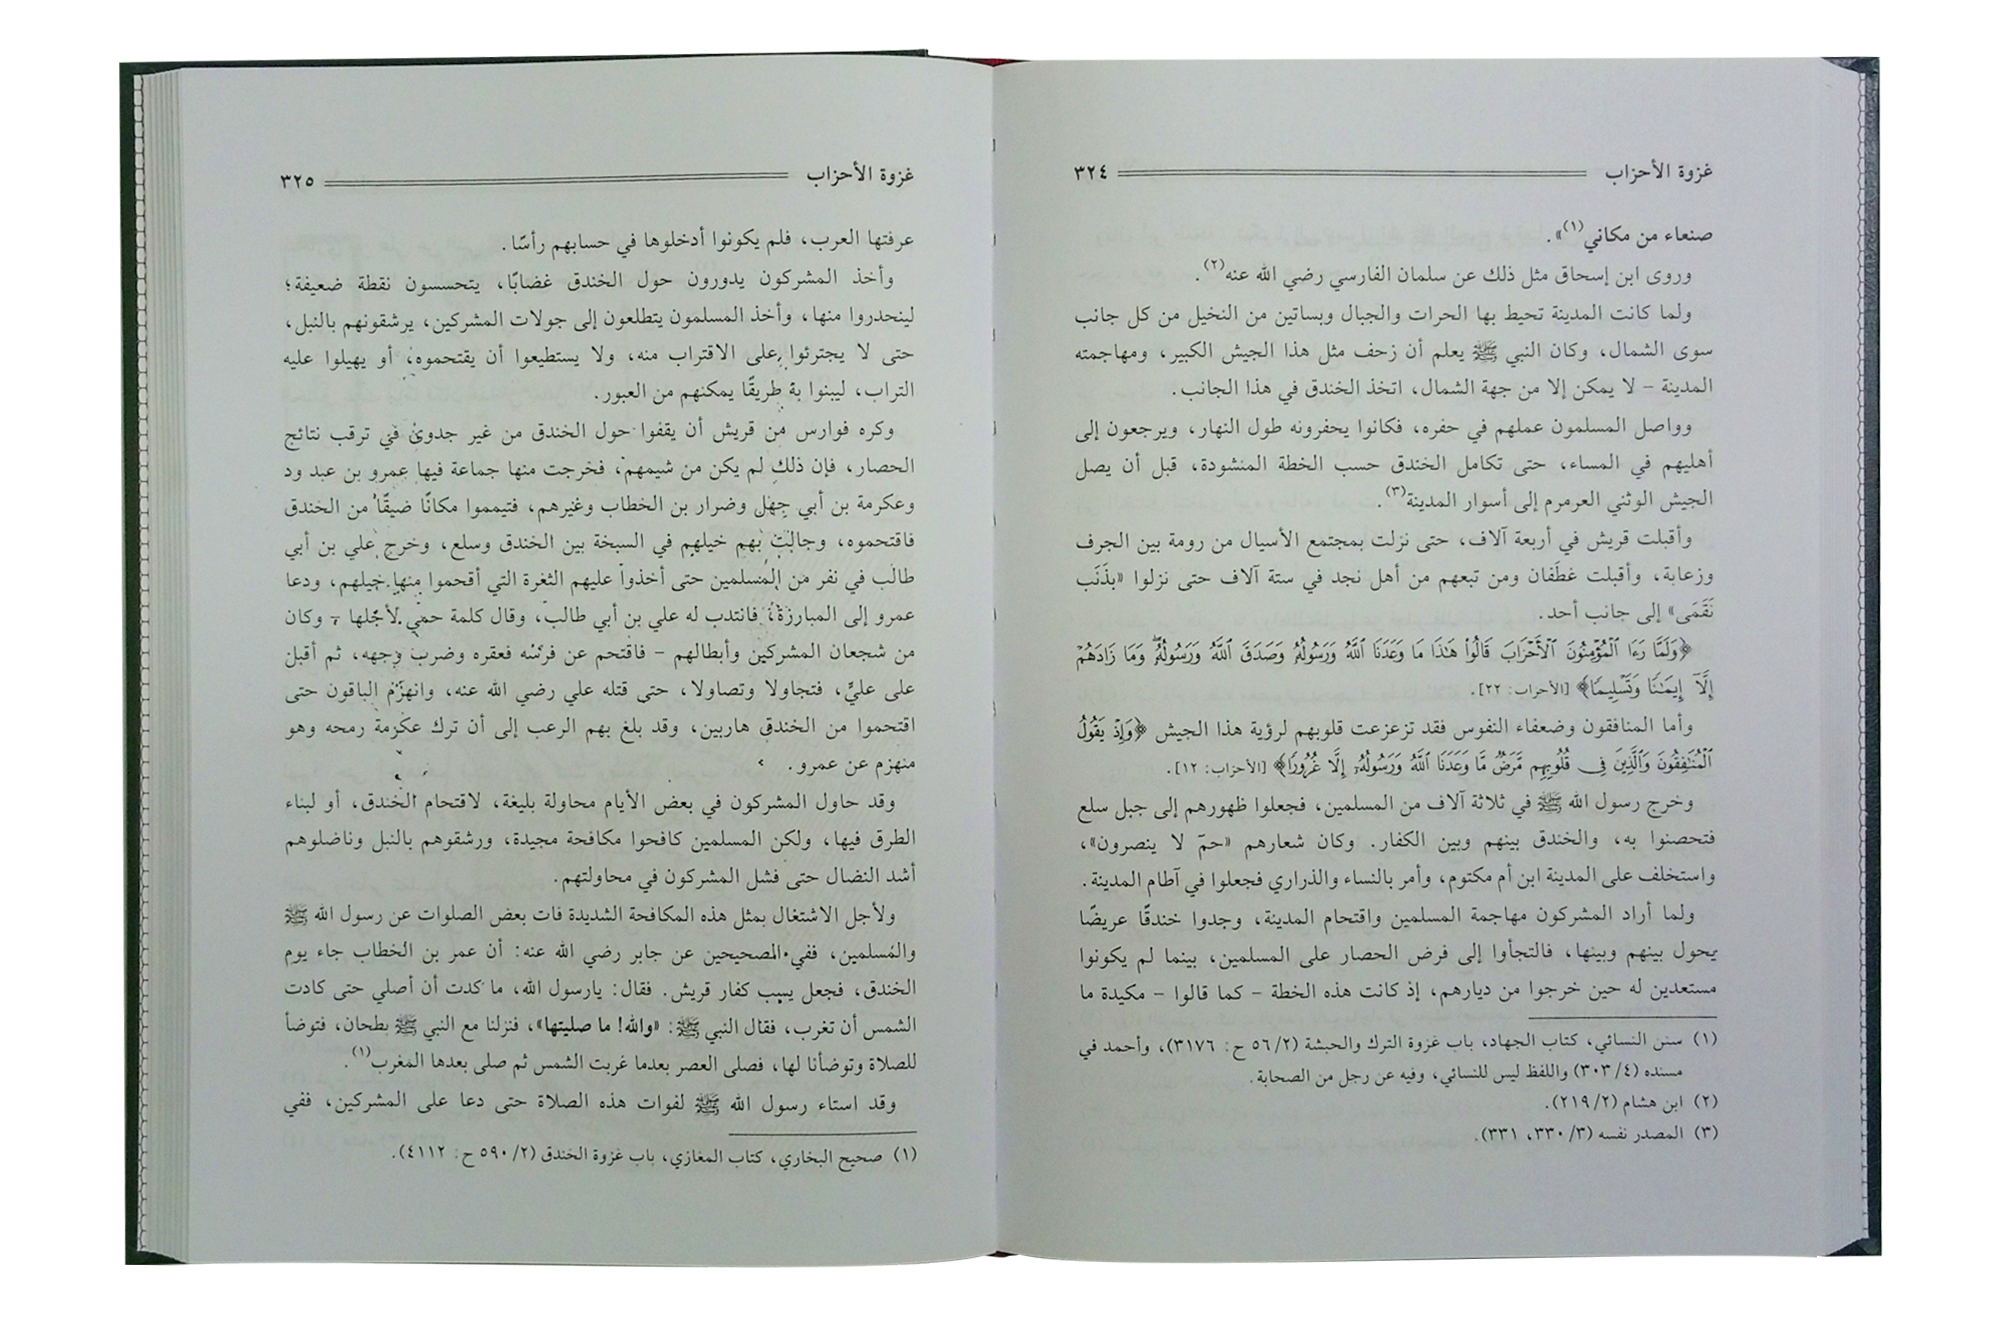 غزوة الأحزاب ٣٢٤
صنعاء من مكاني(١)».
وروى ابن إسحاق مثل ذلك عن سلمان الفارسي رضي الله عنه(٢).
ولما كانت المدينة تحيط بها الحرات والجبال وبساتين من النخيل من كل جانب
سوى الشمال، وكان النبي ﷺ يعلم أن زحف مثل هذا الجيش الكبير، ومهاجمته
المدينة – لا يمكن إلا من جهة الشمال، اتخذ الخندق في هذا الجانب.
وواصل المسلمون عملهم في حفره، فكانوا يحفرونه طول النهار، ويرجعون إلى
أهليهم في المساء، حتى تكامل الخندق حسب الخطة المنشودة، قبل أن يصل
الجيش الوثني العرمرم إلى أسوار المدينة(٣).
وأقبلت قريش في أربعة آلاف، حتى نزلت بمجتمع الأسيال من رومة بين الجرف
وزعابة، وأقبلت غطَفان ومن تبعهم من أهل نجد في ستة آلاف حتى نزلوا «بذَنَب
نَقَمَى» إلى جانب أحد.
﴿وَلَمَّا رَءَا ٱلْمُؤْمِنُونَ ٱلْأَحْزَابَ قَالُوا۟ هَـٰذَا مَا وَعَدَنَا ٱللَّهُ وَرَسُولُهُۥ وَصَدَقَ ٱللَّهُ وَرَسُولُهُۥ ۚ وَمَا زَادَهُمْ
إِلَّآ إِيمَـٰنًا وَتَسْلِيمًا﴾ [الأحزاب: ٢٢].
وأما المنافقون وضعفاء النفوس فقد تزعزعت قلوبهم لرؤية هذا الجيش ﴿وَإِذْ يَقُولُ
ٱلْمُنَـٰفِقُونَ وَٱلَّذِينَ فِى قُلُوبِهِم مَّرَضٌ مَّا وَعَدَنَا ٱللَّهُ وَرَسُولُهُۥٓ إِلَّا غُرُورًا﴾ [الأحزاب: ١٢].
وخرج رسول الله ﷺ في ثلاثة آلاف من المسلمين، فجعلوا ظهورهم إلى جبل سلع
فتحصنوا به، والخندق بينهم وبين الكفار. وكان شعارهم «حمٓ لا ينصرون»،
واستخلف على المدينة ابن أم مكتوم، وأمر بالنساء والذراري فجعلوا في آطام المدينة.
ولما أراد المشركون مهاجمة المسلمين واقتحام المدينة، وجدوا خندقًا عريضًا
يحول بينهم وبينها، فالتجأوا إلى فرض الحصار على المسلمين، بينما لم يكونوا
مستعدين له حين خرجوا من ديارهم، إذ كانت هذه الخطة – كما قالوا – مكيدة ما
(١) سنن النسائي، كتاب الجهاد، باب غزوة الترك والحبشة (٢/ ٥٦ ح: ٣١٧٦)، وأحمد في
مسنده (٤/ ٣٠٣) واللفظ ليس للنسائي، وفيه عن رجل من الصحابة.
(٢) ابن هشام (٢/ ٢١٩).
(٣) المصدر نفسه (٣/ ٣٣٠، ٣٣١).
غزوة الأحزاب ٣٢٥
عرفتها العرب، فلم يكونوا أدخلوها في حسابهم رأسًا.
وأخذ المشركون يدورون حول الخندق غضابًا، يتحسسون نقطة ضعيفة؛
لينحدروا منها، وأخذ المسلمون يتطلعون إلى جولات المشركين، يرشقونهم بالنبل،
حتى لا يجترئوا على الاقتراب منه، ولا يستطيعوا أن يقتحموه، أو يهيلوا عليه
التراب، ليبنوا به طريقًا يمكنهم من العبور.
وكره فوارس من قريش أن يقفوا حول الخندق من غير جدوى في ترقب نتائج
الحصار، فإن ذلك لم يكن من شيمهم، فخرجت منها جماعة فيها عمرو بن عبد ود
وعكرمة بن أبي جهل وضرار بن الخطاب وغيرهم، فتيمموا مكانًا ضيقًا من الخندق
فاقتحموه، وجالت بهم خيلهم في السبخة بين الخندق وسلع، وخرج علي بن أبي
طالب في نفر من المسلمين حتى أخذوا عليهم الثغرة التي أقحموا منها خيلهم، ودعا
عمرو إلى المبارزة، فانتدب له علي بن أبي طالب، وقال كلمة حمي لأجلها – وكان
من شجعان المشركين وأبطالهم – فاقتحم عن فرسه فعقره وضرب وجهه، ثم أقبل
على عليٍّ، فتجاولا وتصاولا، حتى قتله علي رضي الله عنه، وانهزم الباقون حتى
اقتحموا من الخندق هاربين، وقد بلغ بهم الرعب إلى أن ترك عكرمة رمحه وهو
منهزم عن عمرو.
وقد حاول المشركون في بعض الأيام محاولة بليغة، لاقتحام الخندق، أو لبناء
الطرق فيها، ولكن المسلمين كافحوا مكافحة مجيدة، ورشقوهم بالنبل وناضلوهم
أشد النضال حتى فشل المشركون في محاولتهم.
ولأجل الاشتغال بمثل هذه المكافحة الشديدة فات بعض الصلوات عن رسول الله ﷺ
والمسلمين، ففي الصحيحين عن جابر رضي الله عنه: أن عمر بن الخطاب جاء يوم
الخندق، فجعل يسب كفار قريش. فقال: يارسول الله، ما كدت أن أصلي حتى كادت
الشمس أن تغرب، فقال النبي ﷺ: «والله! ما صليتها»، فنزلنا مع النبي ﷺ بطحان، فتوضأ
للصلاة وتوضأنا لها، فصلى العصر بعدما غربت الشمس ثم صلى بعدها المغرب(١).
وقد استاء رسول الله ﷺ لفوات هذه الصلاة حتى دعا على المشركين، ففي
(١) صحيح البخاري، كتاب المغازي، باب غزوة الخندق (٢/ ٥٩٠ ح: ٤١١٢).